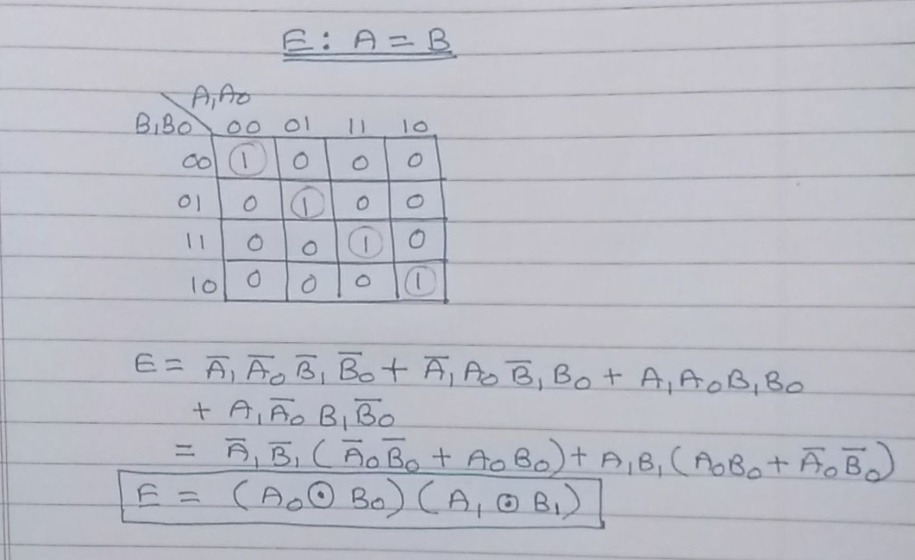 E : A = B
A₁A₀
B₁B₀ 00 01 11 10
00 1 0 0 0
01 0 1 0 0
11 0 0 1 0
10 0 0 0 1
E = A̅₁ A̅₀ B̅₁ B̅₀ + A̅₁ A₀ B̅₁ B₀ + A₁ A₀ B₁ B₀
+ A₁ A̅₀ B₁ B̅₀
= A̅₁ B̅₁ ( A̅₀ B̅₀ + A₀ B₀ ) + A₁ B₁ ( A₀ B₀ + A̅₀ B̅₀ )
E = ( A₀ ⊙ B₀ ) ( A₁ ⊙ B₁ )